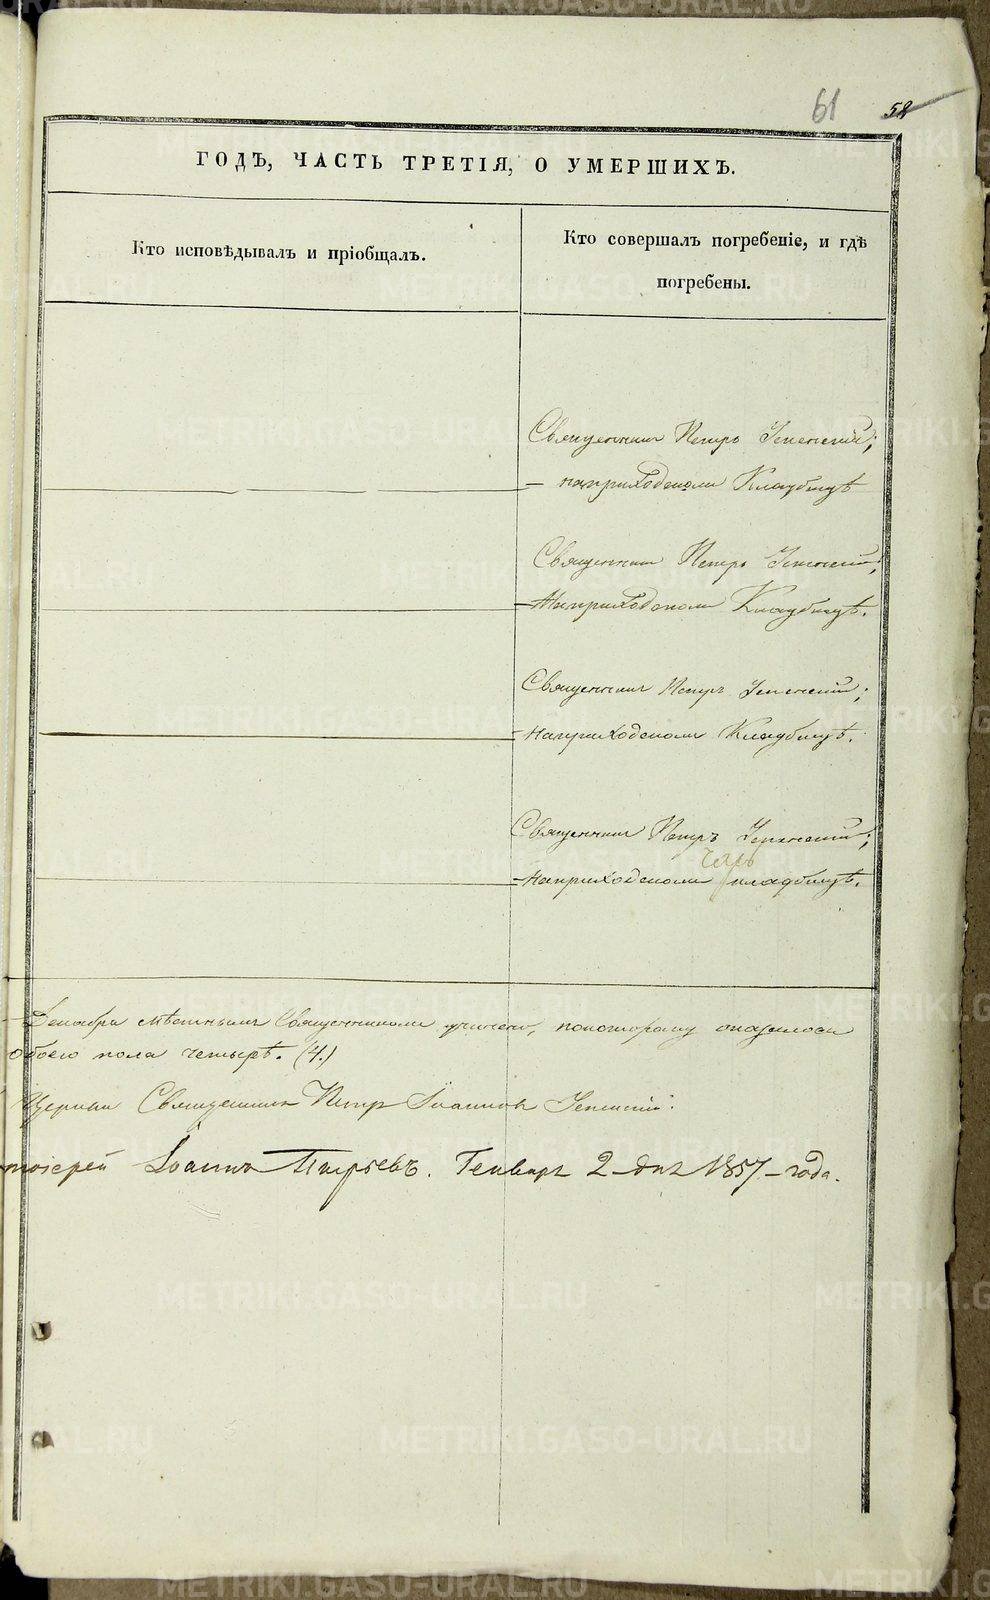 61 58
ГОДЪ, ЧАСТЬ ТРЕТІЯ, О УМЕРШИХЪ.
Кто исповѣдывалъ и пріобщалъ.
Кто совершалъ погребеніе, и гдѣ
погребены.
Священникъ Петръ Успенскій;
на приходскомъ Кладбищѣ
Священникъ Петръ Успенскій;
На приходскомъ Кладбищѣ.
Священникъ Петръ Успенскій;
На приходскомъ Кладбищѣ.
Священникъ Петръ Успенскій;
На приходскомъ кладбищѣ.
Декабря мѣстнымъ Священникомъ учинено, по которому оказалось
обоего пола четыре. (4.)
Церкви Священникъ Петръ Іоанновъ Успенскій.
Іоаннъ Генваря 2 дня 1857 года.
METRIKI.GASO-URAL.RU